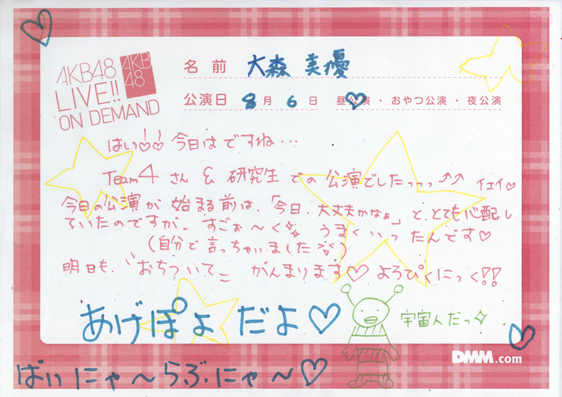 AKB48
LIVE!!
ON DEMAND
AKB
48
名前 大森 美優
公演日 8月6日 昼公演・おやつ公演・夜公演
はい♡♡ 今日はですね…
Team4 さん & 研究生 での 公演でしたっっっ⤴⤴ イェイ♡
今日の公演が 始まる前は、「今日、大丈夫かなぁ」と、とても心配し
ていたのですが。すごぉ〜く うまく いったんです♡
(自分で言っちゃいました)
明日も、"おちついて" がんまります♡ よろぴくにっく!!
あげぽよ だよ♡
宇宙人だっ
DMM.com
ばいにゃ〜らぶにゃ〜♡